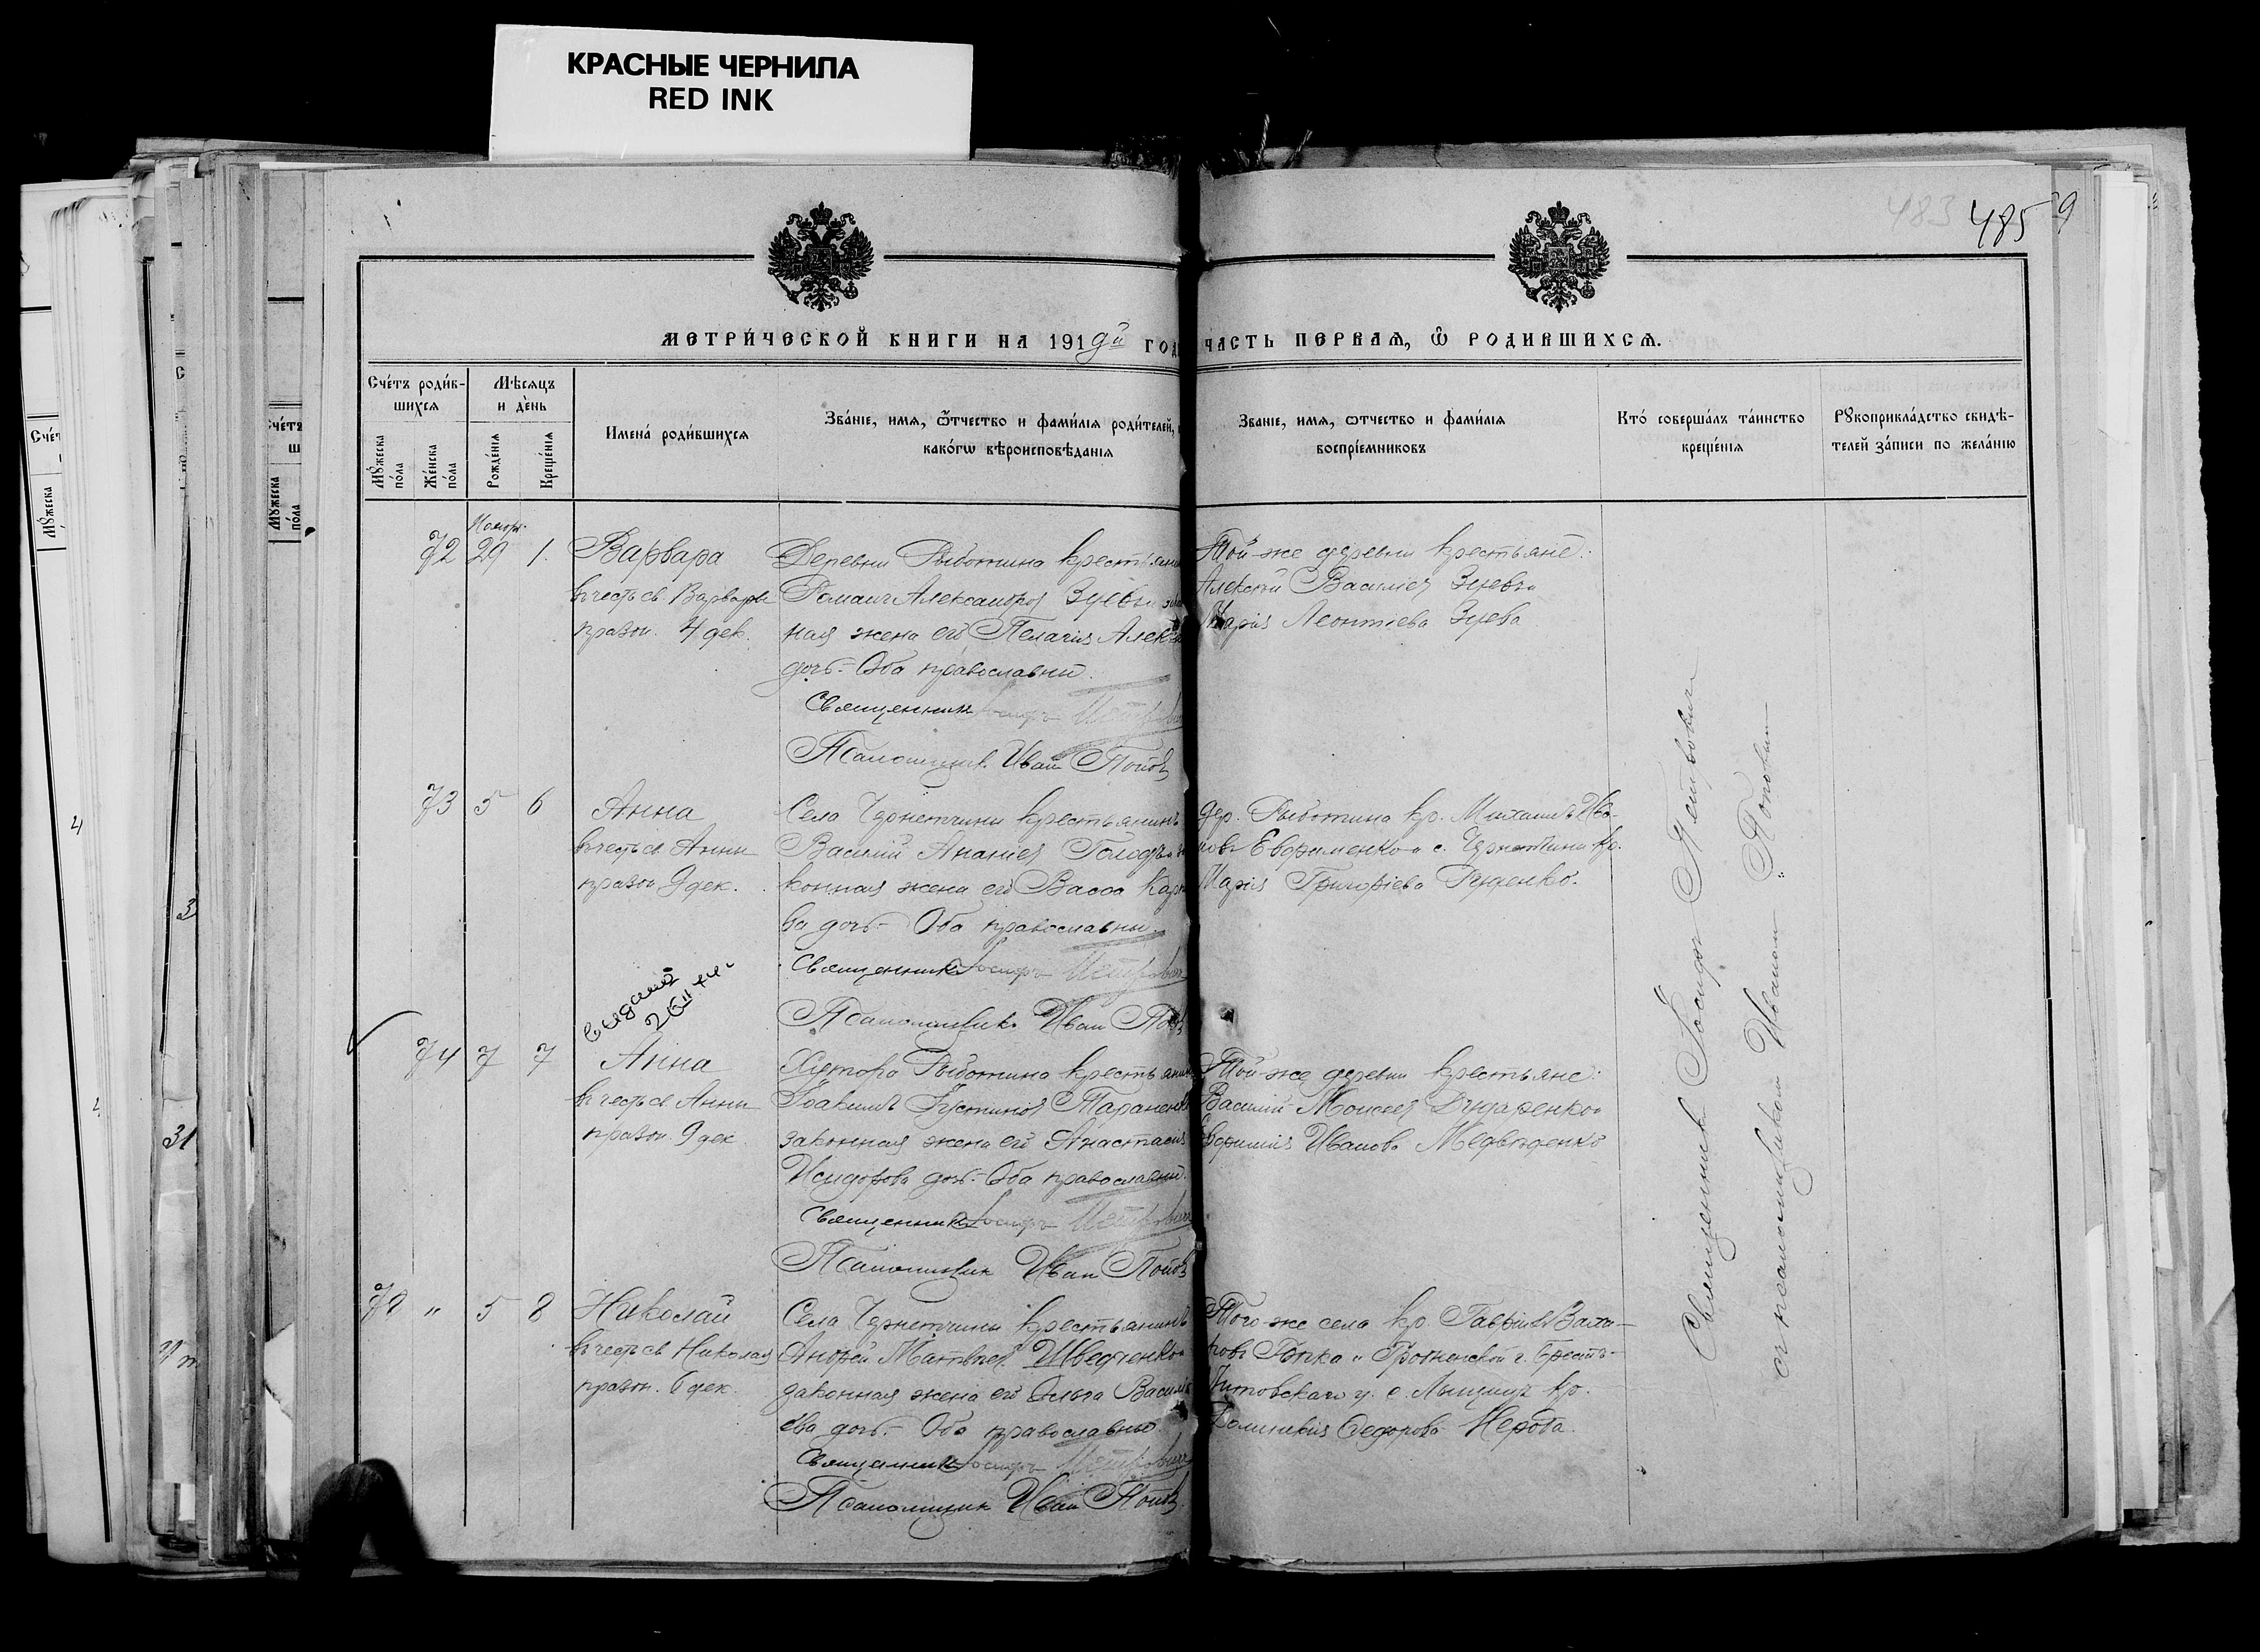 КРАСНЫЕ ЧЕРНИЛА
RED INK
483 485 9
МЕТРИ́ЧЕСКОЙ КНИГИ НА 1919й ГОДЪ
ЧАСТЬ ПЕРВАЯ, Ѡ РОДИВШИХСЯ.
Сче́тъ роди́в-
шихся
Мꙋ́жеска по́ла
Же́нска по́ла
Мѣ́сяцъ
и де́нь
Рожде́нія
Креще́нія
Имена́ роди́вшихся
Зва́ніе, имя, ѿтчество и фами́лія роди́телей,
како́гѡ вѣроисповѣ́данія
Зва́ніе, имя, ѡтчество и фами́лія
воспріе́мниковъ
Кто́ соверша́лъ та́инство
креще́нія
Рꙋкоприкла́дство свидѣ́-
телей за́писи по жела́нію
Ноябр.
72 29 1. Варвара
въ честь св. Варвары
празн. 4 дек.
Деревни Рыботина крестьянин
Романъ Александров Зуевъ
ная жена его Пелагия Алекс
дочь.- Оба православны.
Священник Иосифъ Петрович
Псаломщик Иван Попов
Той-же деревни крестьяне:
Алексѣй Василиев Зуевъ и
Марія Леонтіева Зуева
73 5 6 Анна
въ честь св. Анны
празн. 9 дек.
Села Чернетчины крестьянинъ
Василий Ананіев
конная жена его Васса Карп
ва дочь - Оба православны.
Священник Иосифъ Петрович
Псаломщик Иван Попов
Дер. Рыботина кр. Михаилъ Ива-
новъ Евфименко и с. Чернетчины кр.
Марія Григоріева Руденко.
74 7 7 Анна
въ честь св. Анны
празн. 9 дек.
Хутора Рыботина крестьянин
Іоакимъ Іустинов Тараненко
законная жена его Анастасия
Исидорова дочь.- Оба православны.
Священник Иосифъ Петрович
Псаломщик Иван Попов
Той-же деревни крестьяне:
Василий Моисеев Дударенко и
Евфимия Иванова Медвѣденко
79 " 5 8 Николай
въ честь св. Николая
празн. 6 дек.
Села Чернетчины крестьянинъ
Андрей Матвѣев Шведченко
законная жена его Ольга Василі
ева дочь.- Оба православны
Священник Иосифъ Петрович
Псаломщик Иван Попов
Того-же села кр. Гавріилъ
Гродненской г. Брестъ-
Литовскаго у. с. кр.
Федорова
Священник Іосифъ Петрович
съ псаломщиком Иваном Поповым